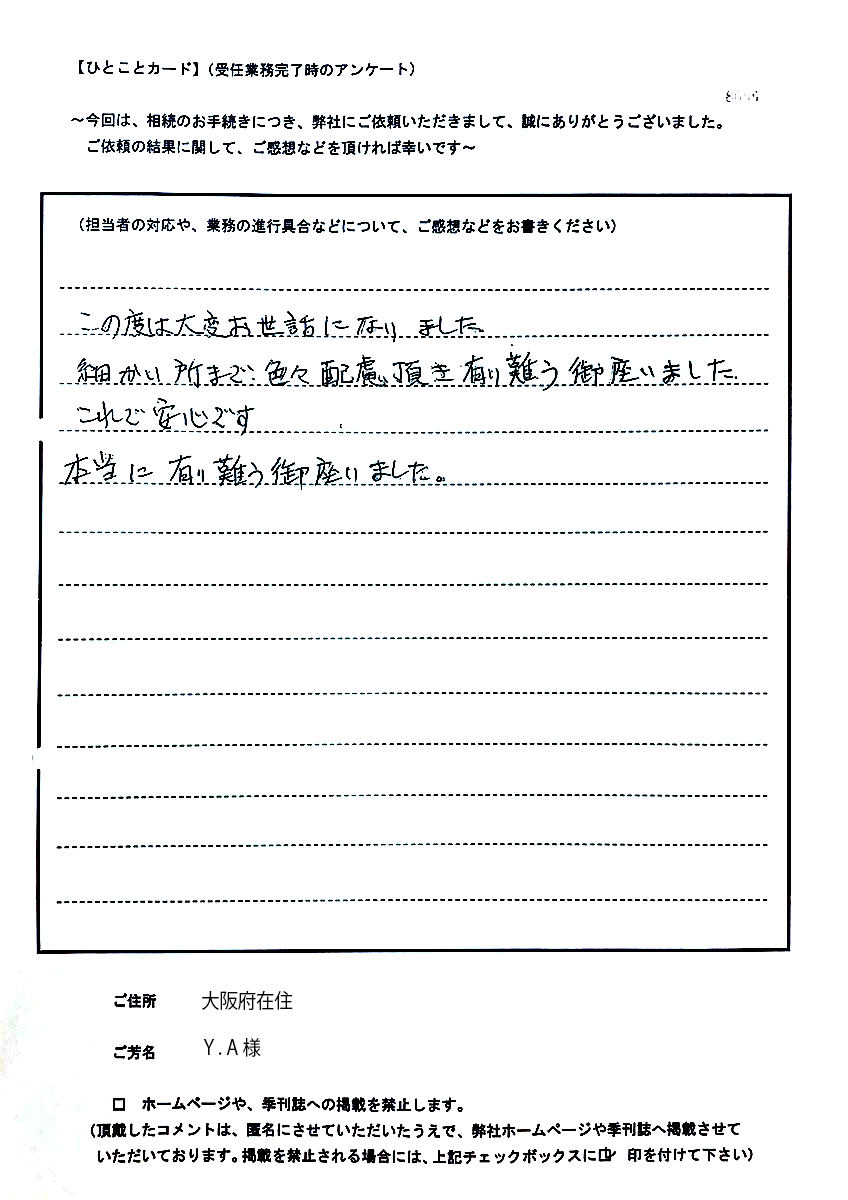 【ひとことカード】（受任業務完了時のアンケート）
～今回は、相続のお手続きにつき、弊社にご依頼いただきまして、誠にありがとうございました。
ご依頼の結果に関して、ご感想などを頂ければ幸いです～
（担当者の対応や、業務の進行具合などについて、ご感想などをお書きください）
この度は大変お世話になりました。
細かい所まで、色々配慮頂き有り難う御座いました。
これで安心です
本当に有り難う御座いました。
ご住所 大阪府在住
ご芳名 Y.A様
□ ホームページや、季刊誌への掲載を禁止します。
（頂戴したコメントは、匿名にさせていただいたうえで、弊社ホームページや季刊誌へ掲載させて
いただいております。掲載を禁止される場合には、上記チェックボックスに☑ 印を付けて下さい）